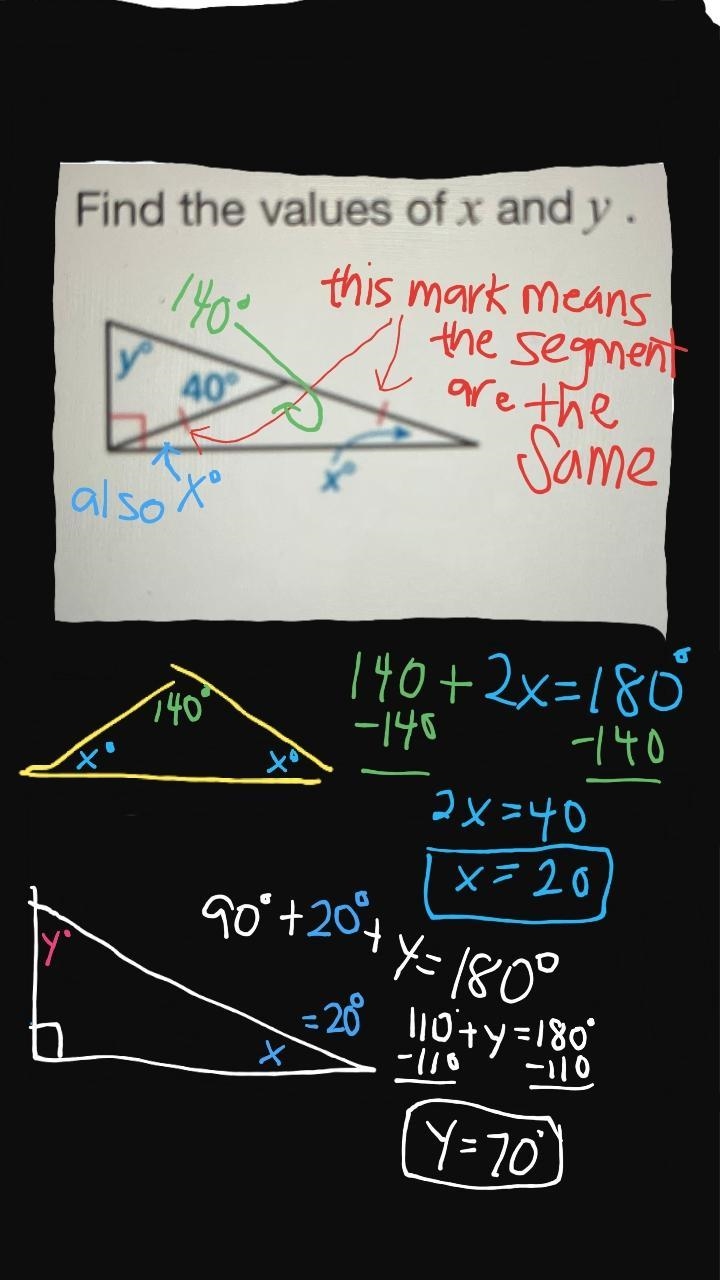 Find the values of x and y .
140°
this mark means
the segment
are the
Same
y°
40°
x°
also x°
140°
x°
x°
140 + 2x = 180°
-140 -140
2x = 40
x = 20
90° + 20° + y = 180°
y°
= 20°
x
110° + y = 180°
-110 -110
y = 70°